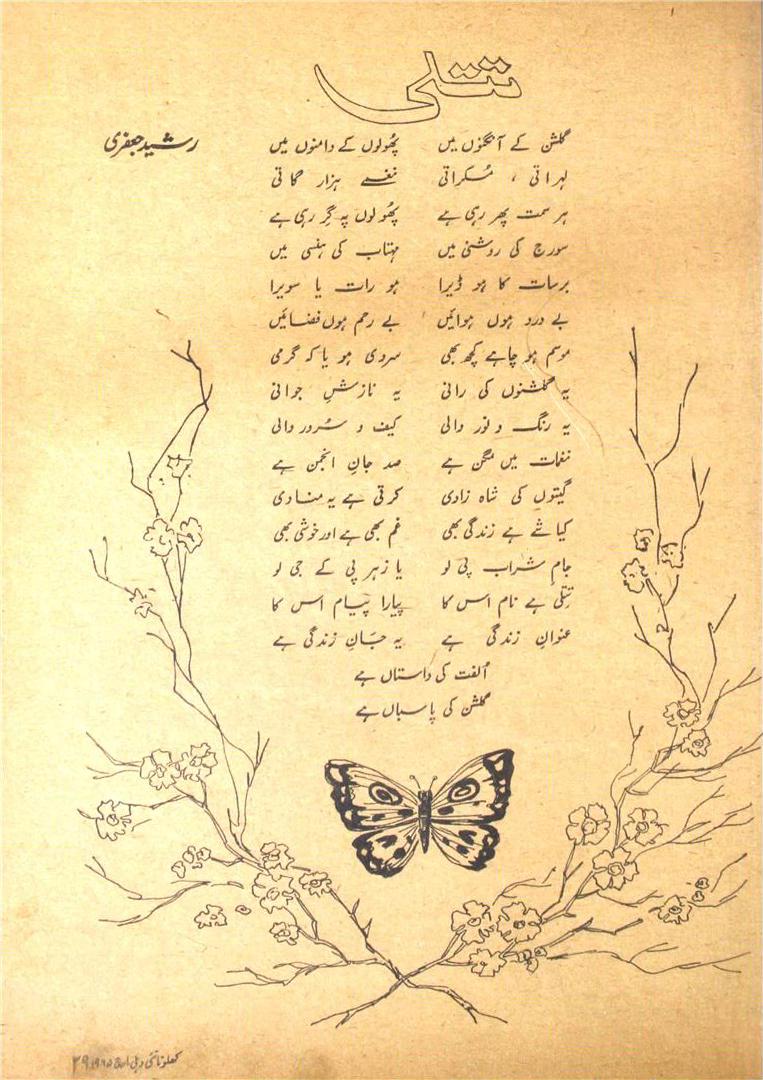 تتلی
رشید جعفری
گلشن کے آنگنوں میں پھُولوں کے دامنوں میں
لہراتی ، مُسکراتی نغمے ہزار گاتی
ہر سمت پھر رہی ہے پھُولوں پہ گِر رہی ہے
سورج کی روشنی میں مہتاب کی ہنسی میں
برسات کا ہو ڈیرا ہو رات یا سویرا
بے درد ہوں ہوائیں بے رحم ہوں فضائیں
موسم ہو چاہے کچھ بھی سردی ہو یا کہ گرمی
یہ گلشنوں کی رانی یہ نازشِ جوانی
یہ رنگ و نور والی کیف و سُرور والی
نغمات میں مگن ہے صد جانِ انجمن ہے
گیتوں کی شاہ زادی کرتی ہے یہ منادی
کیا شے ہے زندگی بھی غم بھی ہے اور خوشی بھی
جامِ شراب پی لو یا زہر پی کے جی لو
تِتلی ہے نام اس کا پیارا پیام اس کا
عنوانِ زندگی ہے یہ جَانِ زندگی ہے
اُلفت کی داستاں ہے
گلشن کی پاسباں ہے
کھلونا نئی دہلی مارچ ۱۹۶۵ ۲۹